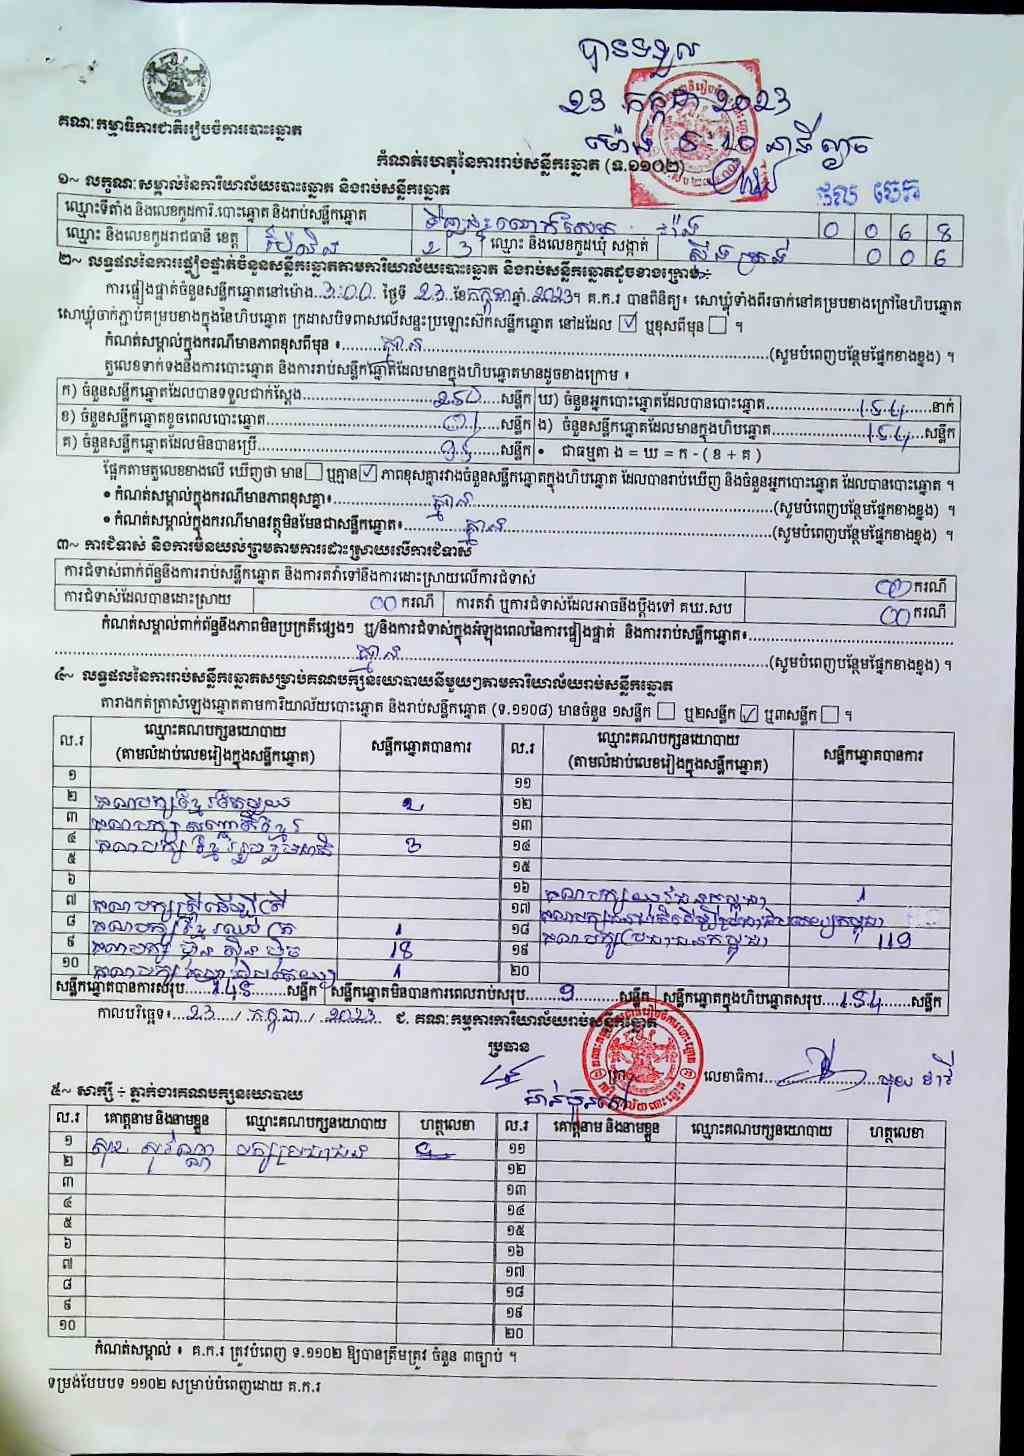 បានទទួល
23 កក្កដា 2023
ម៉ោង 5:10 នាទី ល្ងាច
គណៈកម្មាធិការជាតិរៀបចំការបោះឆ្នោត
កំណត់ហេតុនៃការរាប់សន្លឹកឆ្នោត (ទ.១១០២)
១~ លក្ខណៈសម្គាល់នៃការិយាល័យបោះឆ្នោត និងរាប់សន្លឹកឆ្នោត
ឈ្មោះទីតាំង និងលេខកូដការិ.បោះឆ្នោត និងរាប់សន្លឹកឆ្នោត 0 0 6 8
ឈ្មោះ និងលេខកូដរាជធានី ខេត្ត ប៉ៃលិន 2 3 ឈ្មោះ និងលេខកូដឃុំ សង្កាត់ ស្ទឹងត្រង់ 0 0 6
២~ លទ្ធផលនៃការផ្ទៀងផ្ទាត់ចំនួនសន្លឹកឆ្នោតតាមការិយាល័យបោះឆ្នោត និងរាប់សន្លឹកឆ្នោតដូចខាងក្រោម÷
ការផ្ទៀងផ្ទាត់ចំនួនសន្លឹកឆ្នោតនៅម៉ោង..3:00.. ថ្ងៃទី 23 ខែកក្កដាឆ្នាំ 2023។ គ.ក.រ បានពិនិត្យ៖ សោឃ្លុំទាំងពីរចាក់នៅគម្របខាងក្រៅនៃហិបឆ្នោត
សោឃ្លុំចាក់ភ្ជាប់គម្របខាងក្នុងនៃហិបឆ្នោត ក្រដាសបិទពាសលើសន្ទះប្រឡោះស៊កសន្លឹកឆ្នោត នៅដដែល ☑ ឬខុសពីមុន ☐ ។
កំណត់សម្គាល់ក្នុងករណីមានភាពខុសពីមុន ៖ គ្មាន (សូមបំពេញបន្ថែមផ្នែកខាងខ្នង) ។
តួលេខទាក់ទងនឹងការបោះឆ្នោត និងការរាប់សន្លឹកឆ្នោតដែលមានក្នុងហិបឆ្នោតមានដូចខាងក្រោម ៖
ក) ចំនួនសន្លឹកឆ្នោតដែលបានទទួលជាក់ស្តែង 250 សន្លឹក ឃ) ចំនួនអ្នកបោះឆ្នោតដែលបានបោះឆ្នោត 154 នាក់
ខ) ចំនួនសន្លឹកឆ្នោតខូចពេលបោះឆ្នោត 01 សន្លឹក ង) ចំនួនសន្លឹកឆ្នោតដែលមានក្នុងហិបឆ្នោត 154 សន្លឹក
គ) ចំនួនសន្លឹកឆ្នោតដែលមិនបានប្រើ 95 សន្លឹក • ជាធម្មតា ង = ឃ = ក - ( ខ + គ )
ផ្អែកតាមតួលេខខាងលើ ឃើញថា មាន ☐ ឬគ្មាន ☑ ភាពខុសគ្នារវាងចំនួនសន្លឹកឆ្នោតក្នុងហិបឆ្នោត ដែលបានរាប់ឃើញ និងចំនួនអ្នកបោះឆ្នោត ដែលបានបោះឆ្នោត ។
• កំណត់សម្គាល់ក្នុងករណីមានភាពខុសគ្នា៖ គ្មាន (សូមបំពេញបន្ថែមផ្នែកខាងខ្នង) ។
• កំណត់សម្គាល់ក្នុងករណីមានវត្ថុមិនមែនជាសន្លឹកឆ្នោត៖ គ្មាន (សូមបំពេញបន្ថែមផ្នែកខាងខ្នង) ។
៣~ ការជំទាស់ និងការមិនយល់ព្រមតាមការដោះស្រាយលើការជំទាស់
ការជំទាស់ពាក់ព័ន្ធនឹងការរាប់សន្លឹកឆ្នោត និងការតវ៉ាទៅនឹងការដោះស្រាយលើការជំទាស់ 00 ករណី
ការជំទាស់ដែលបានដោះស្រាយ 00 ករណី ការតវ៉ា ឬការជំទាស់ដែលអាចនឹងប្តឹងទៅ គឃ.សប 00 ករណី
កំណត់សម្គាល់ពាក់ព័ន្ធនឹងភាពមិនប្រក្រតីផ្សេងៗ ឬ/និងការជំទាស់ក្នុងអំឡុងពេលនៃការផ្ទៀងផ្ទាត់ និងការរាប់សន្លឹកឆ្នោត៖
គ្មាន (សូមបំពេញបន្ថែមផ្នែកខាងខ្នង) ។
៤~ លទ្ធផលនៃការរាប់សន្លឹកឆ្នោតសម្រាប់គណបក្សនយោបាយនីមួយៗតាមការិយាល័យរាប់សន្លឹកឆ្នោត
តារាងកត់ត្រាសំឡេងឆ្នោតតាមការិយាល័យបោះឆ្នោត និងរាប់សន្លឹកឆ្នោត (ទ.១១០៨) មានចំនួន ១សន្លឹក ☐ ឬ២សន្លឹក ☑ ឬ៣សន្លឹក ☐ ។
ល.រ ឈ្មោះគណបក្សនយោបាយ (តាមលំដាប់លេខរៀងក្នុងសន្លឹកឆ្នោត) សន្លឹកឆ្នោតបានការ ល.រ ឈ្មោះគណបក្សនយោបាយ (តាមលំដាប់លេខរៀងក្នុងសន្លឹកឆ្នោត) សន្លឹកឆ្នោតបានការ
១ ១១
២ 2 ១២
៣ ១៣
៤ គណបក្ស ខ្មែររួបរួមជាតិ 3 ១៤
៥ ១៥
៦ ១៦ 1
៧ ១៧
៨ 1 ១៨ គណបក្សប្រជាជនកម្ពុជា 119
៩ 18 ១៩
១០ 1 ២០
សន្លឹកឆ្នោតបានការសរុប 145 សន្លឹក សន្លឹកឆ្នោតមិនបានការពេលរាប់សរុប 9 សន្លឹក សន្លឹកឆ្នោតក្នុងហិបឆ្នោតសរុប 154 សន្លឹក
កាលបរិច្ឆេទ៖ 23 / កក្កដា / 2023 ជ. គណៈកម្មការការិយាល័យរាប់សន្លឹកឆ្នោត
ប្រធាន
លេខាធិការ
៥~ សាក្សី ÷ ភ្នាក់ងារគណបក្សនយោបាយ
ល.រ គោត្តនាម និងនាមខ្លួន ឈ្មោះគណបក្សនយោបាយ ហត្ថលេខា ល.រ គោត្តនាម និងនាមខ្លួន ឈ្មោះគណបក្សនយោបាយ ហត្ថលេខា
១ បក្សប្រជាជន ១១
២ ១២
៣ ១៣
៤ ១៤
៥ ១៥
៦ ១៦
៧ ១៧
៨ ១៨
៩ ១៩
១០ ២០
កំណត់សម្គាល់ ៖ គ.ក.រ ត្រូវបំពេញ ទ.១១០២ ឱ្យបានត្រឹមត្រូវ ចំនួន ៣ច្បាប់ ។
ទម្រង់បែបបទ ១១០២ សម្រាប់បំពេញដោយ គ.ក.រ